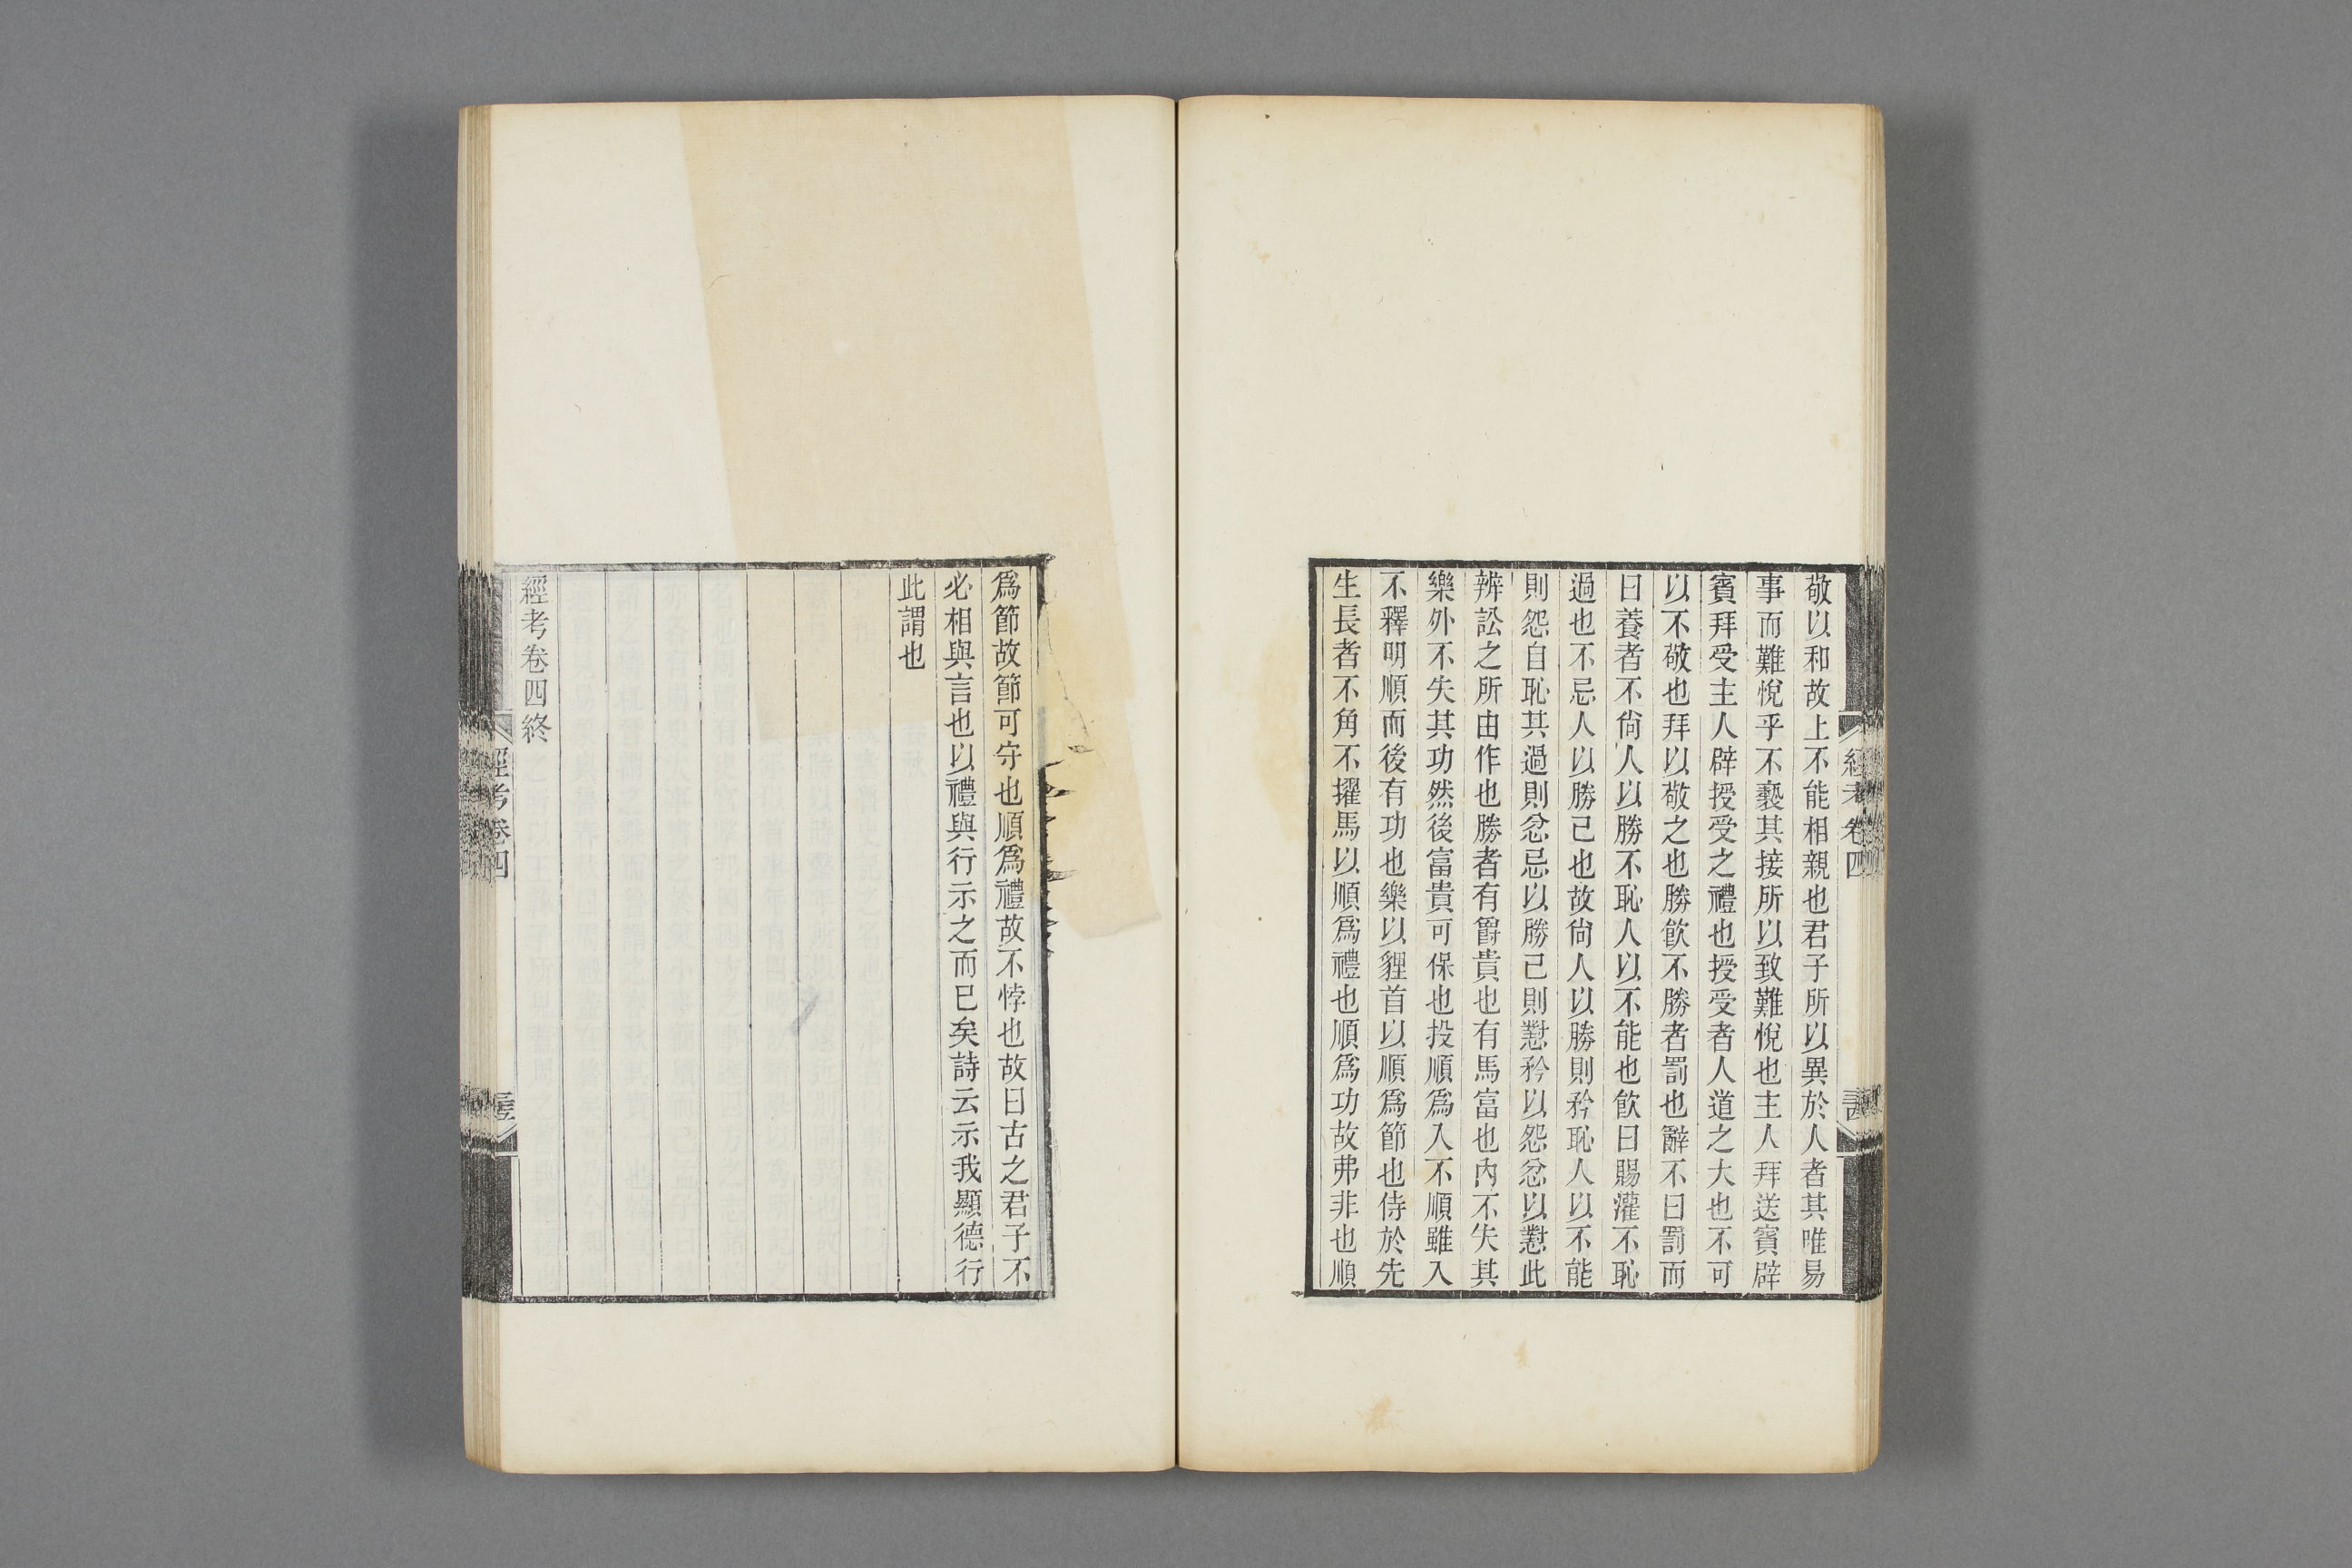 敬以和故上不能相親也君子所以異於人者其唯易
事而難悅乎不褻其接所以致難悅也主人拜送賓辟
賓拜受主人辟授受之禮也授受者人道之大也不可
以不敬也拜以敬之也勝飮不勝者罰也辭不曰罰而
曰養者不尙人以勝不恥人以不能也飮曰賜灌不恥
過也不忌人以勝己也故尙人以勝則矜恥人以不能
則怨自恥其過則忿忌以勝己則懟矜以怨忿以懟此
辨訟之所由作也勝者有爵貴也有馬富也內不失其
樂外不失其功然後富貴可保也投順爲入不順雖入
不釋明順而後有功也樂以貍首以順爲節也侍於先
生長者不角不擢馬以順爲禮也順爲功故弗非也順
經考卷四
爲節故節可守也順爲禮故不悖也故曰古之君子不
必相與言也以禮與行示之而已矣詩云示我顯德行
此謂也
經考卷四終
經考卷四